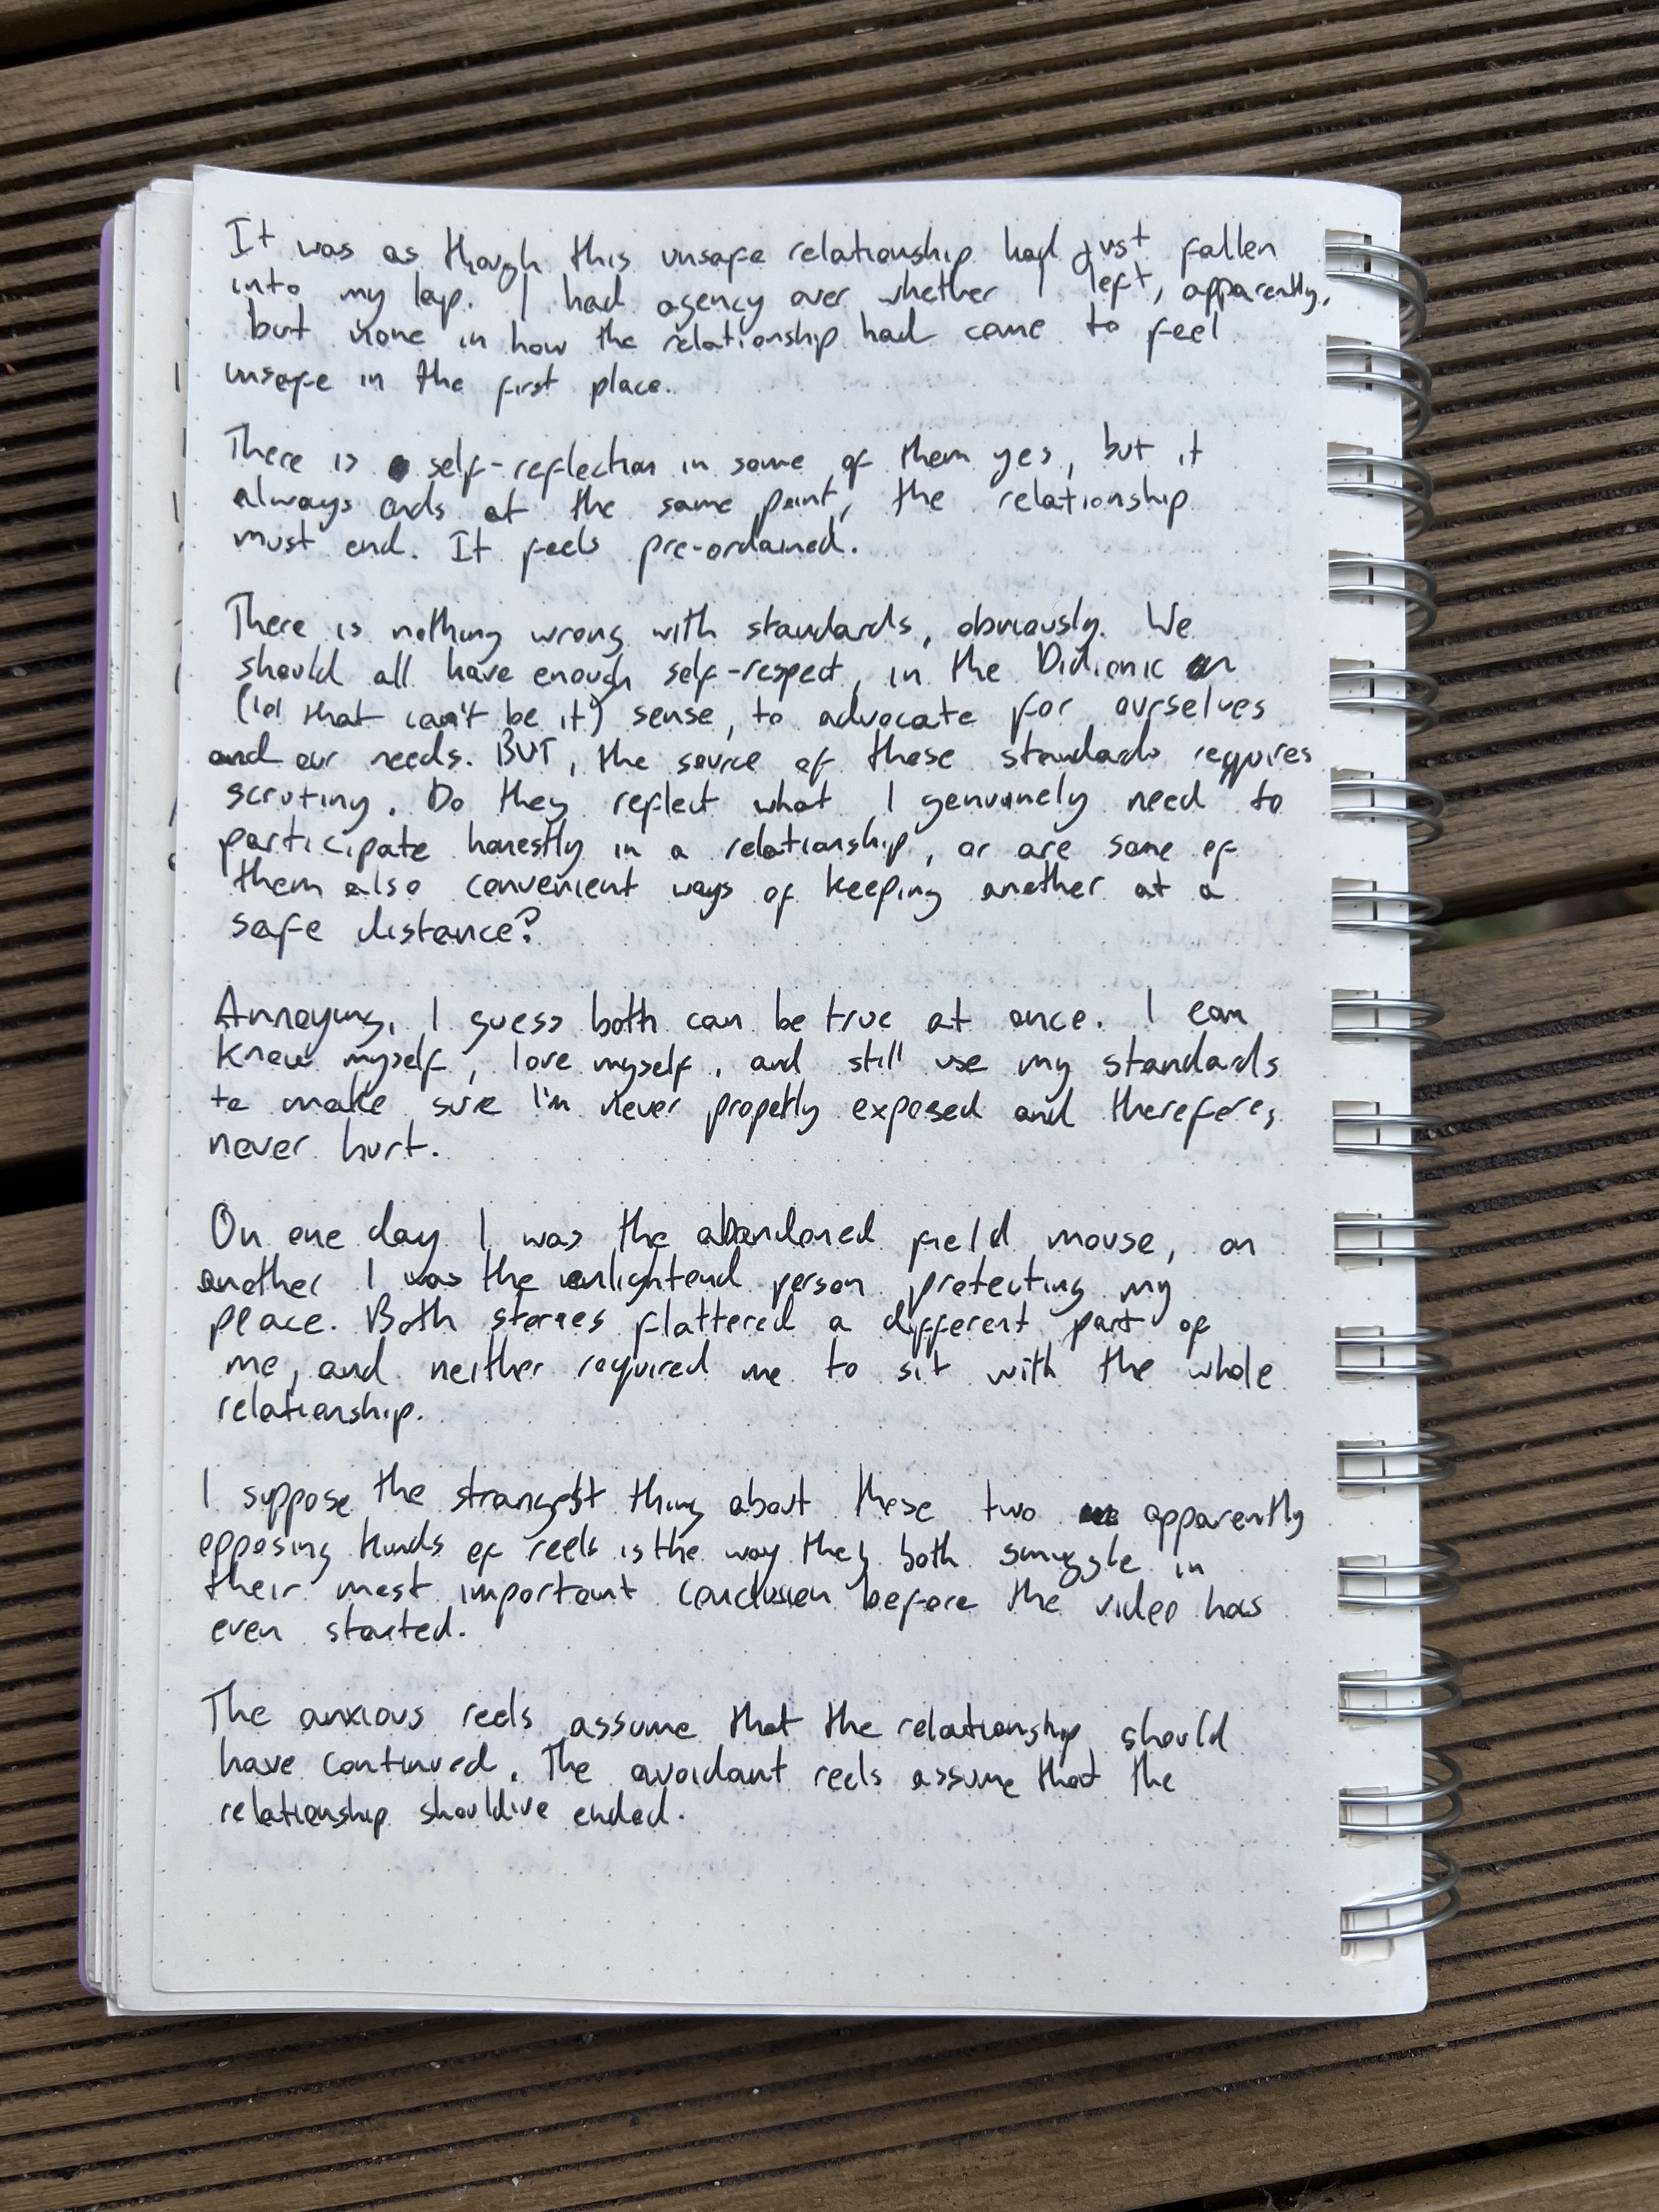 It was as though this unsafe relationship had just fallen
into my lap. I had agency over whether I left, apparently,
but none in how the relationship had come to feel
unsafe in the first place.
There is self-reflection in some of them yes, but it
always ends at the same point, the relationship
must end. It feels pre-ordained.
There is nothing wrong with standards, obviously. We
should all have enough self-respect, in the Didionic
(lol that can't be it) sense, to advocate for ourselves
and our needs. BUT, the source of these standards requires
scrutiny. Do they reflect what I genuinely need to
participate honestly in a relationship, or are some of
them also convenient ways of keeping another at a
safe distance?
Annoying, I guess both can be true at once. I can
know myself, love myself, and still use my standards
to make sure I'm never properly exposed and therefore,
never hurt.
On one day I was the abandoned field mouse, on
another I was the enlightend person protecting my
peace. Both stories flattered a different part of
me, and neither required me to sit with the whole
relationship.
I suppose the strangest thing about these two apparently
opposing kinds of reels is the way they both smuggle in
their most important conclusion before the video has
even started.
The anxious reels assume that the relationship should
have continued. The avoidant reels assume that the
relationship should've ended.